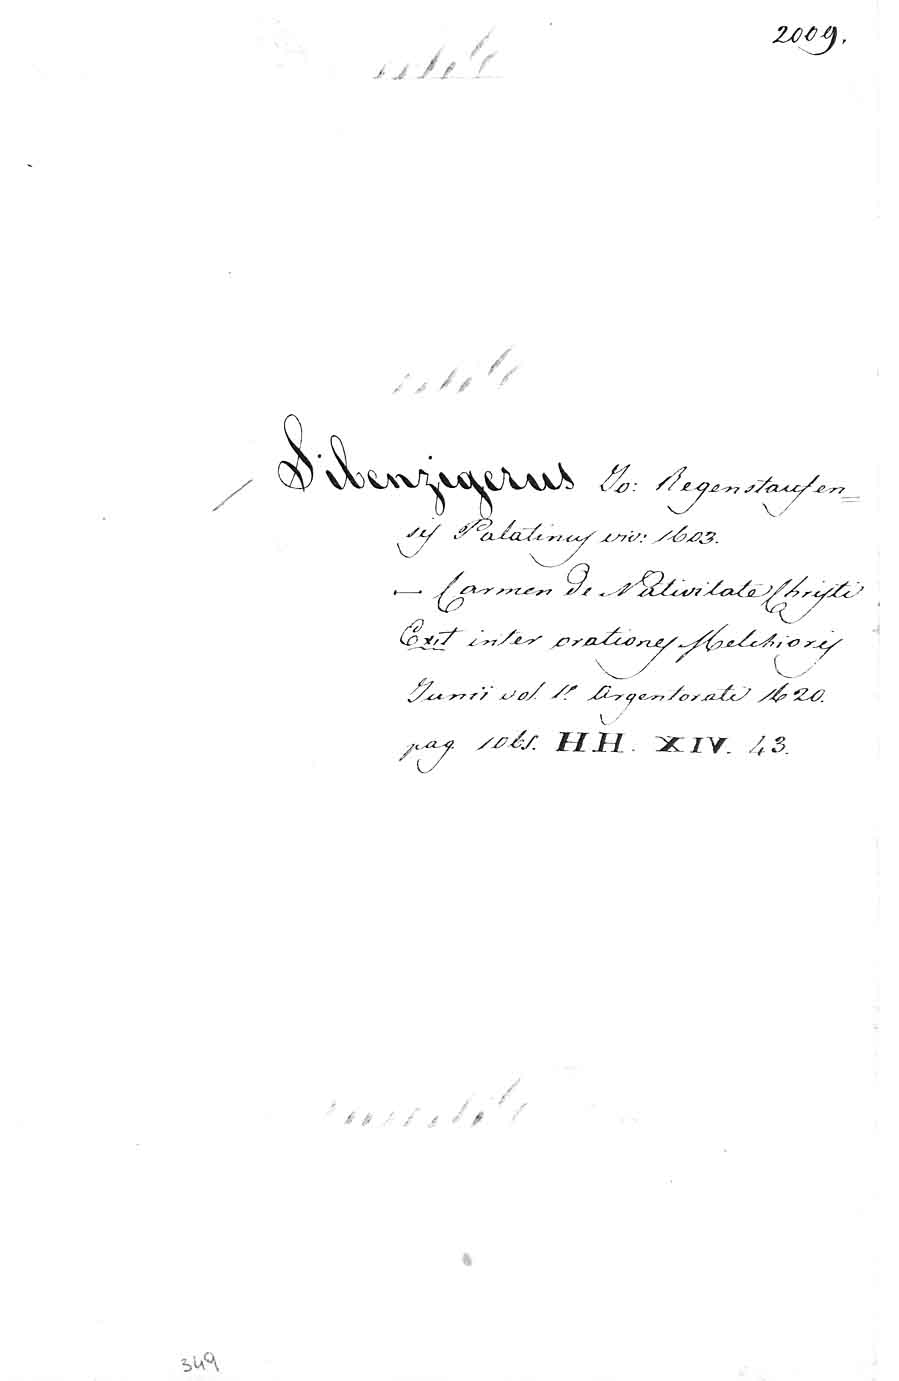 2009.
Sibenzigerus Jo: Regenstaufen=
sis Palatinus viv: 1603.
— Carmen de Nativitate Christi
Exit inter orationes Melchioris
Junii vol. 1º Argentorati 1620.
pag. 1065. HH. XIV. 43.
349